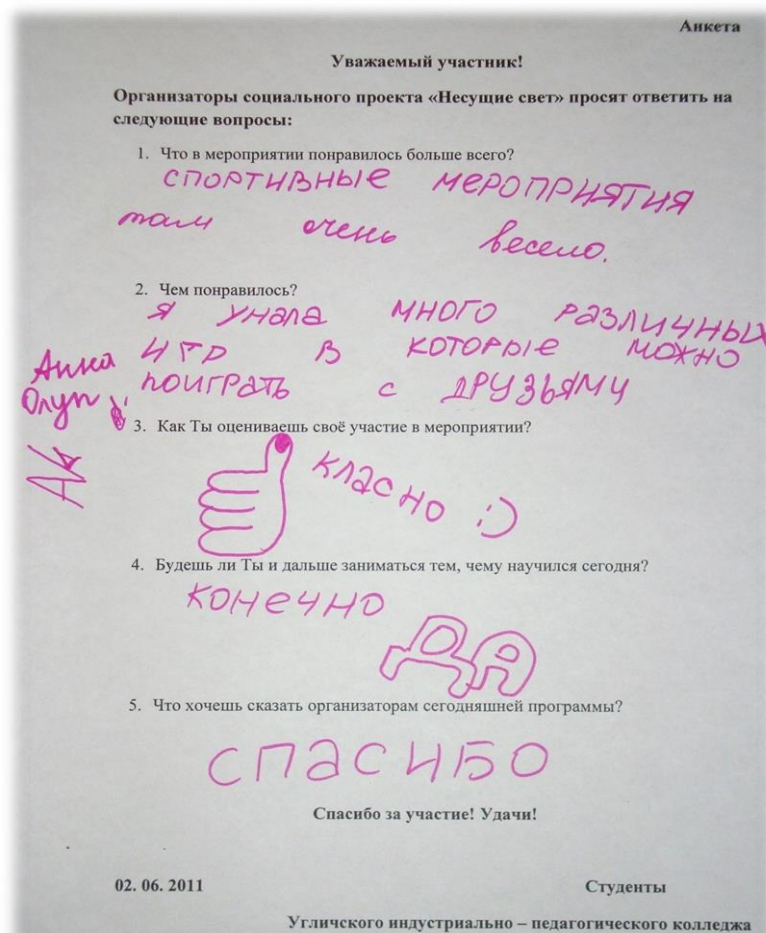 Анкета
Уважаемый участник!
Организаторы социального проекта «Несущие свет» просят ответить на
следующие вопросы:
1. Что в мероприятии понравилось больше всего?
СПОРТИВНЫЕ МЕРОПРИЯТИЯ
там очень весело.
2. Чем понравилось?
Я УНАЛА МНОГО РАЗЛИЧНЫХ
ИГР В КОТОРЫЕ МОЖНО
ПОИГРАТЬ С ДРУЗЬЯМИ
3. Как Ты оцениваешь своё участие в мероприятии?
КЛАСНО :)
4. Будешь ли Ты и дальше заниматься тем, чему научился сегодня?
КОНЕЧНО
ДА
5. Что хочешь сказать организаторам сегодняшней программы?
СПАСИБО
Спасибо за участие! Удачи!
02. 06. 2011 Студенты
Угличского индустриально – педагогического колледжа